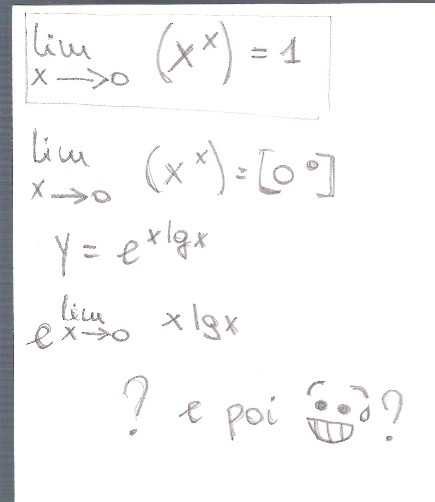 lim x→0 (x^x) = 1
lim x→0 (x^x) = [0^0]
y = e^x lg x
e^lim x→0 x lg x
? e poi ?